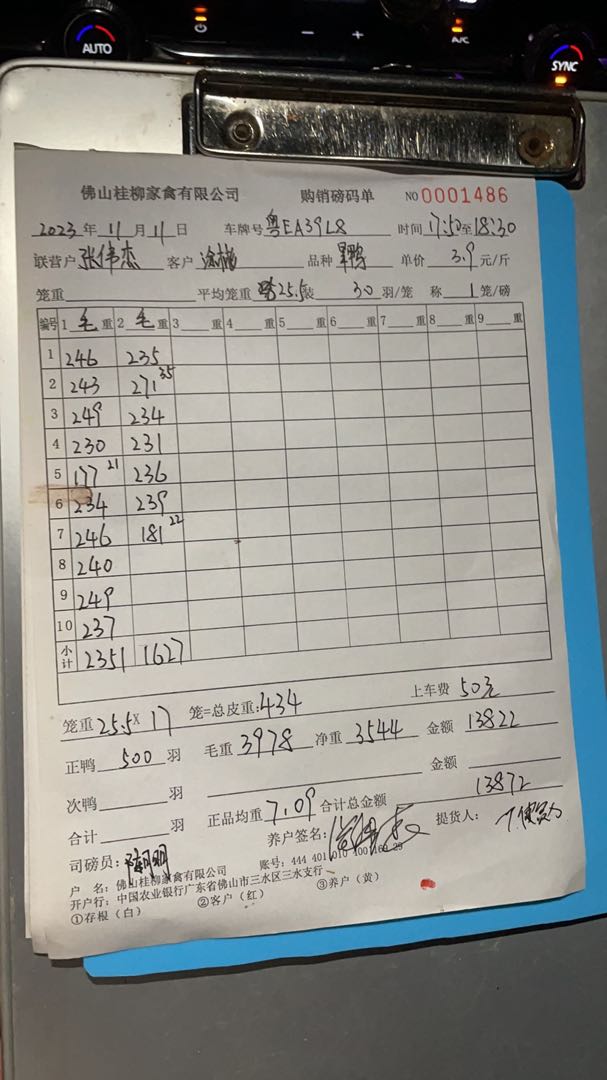 AUTO
A/C
SYNC
佛山桂柳家禽有限公司 购销磅码单 NO 0001486
2023 年 11 月 11 日 车牌号 粤EA39L8 时间 17:50至18:30
联营户 张伟杰 客户 品种 鸭 单价 3.9 元/斤
笼重 平均笼重 25.5 装 30 羽/笼 称 1 笼/磅
编号 1 毛 重 2 毛 重 3 重 4 重 5 重 6 重 7 重 8 重 9 重
1 246 235
2 243 271 35
3 249 234
4 230 231
5 177 21 236
6 234 239
7 246 181 22
8 240
9 249
10 237
小计 2351 1627
笼重 25.5 X 17 笼=总皮重: 434 上车费 50元
正鸭 500 羽 毛重 3978 净重 3544 金额 13822
次鸭 羽 金额
合计 羽 正品均重 7.09 合计总金额 13872
司磅员: 养户签名: 提货人:
户 名: 佛山桂柳家禽有限公司 账号: 444 401 010 400 160 29
开户行: 中国农业银行广东省佛山市三水区三水支行
①存根(白) ②客户(红) ③养户(黄)